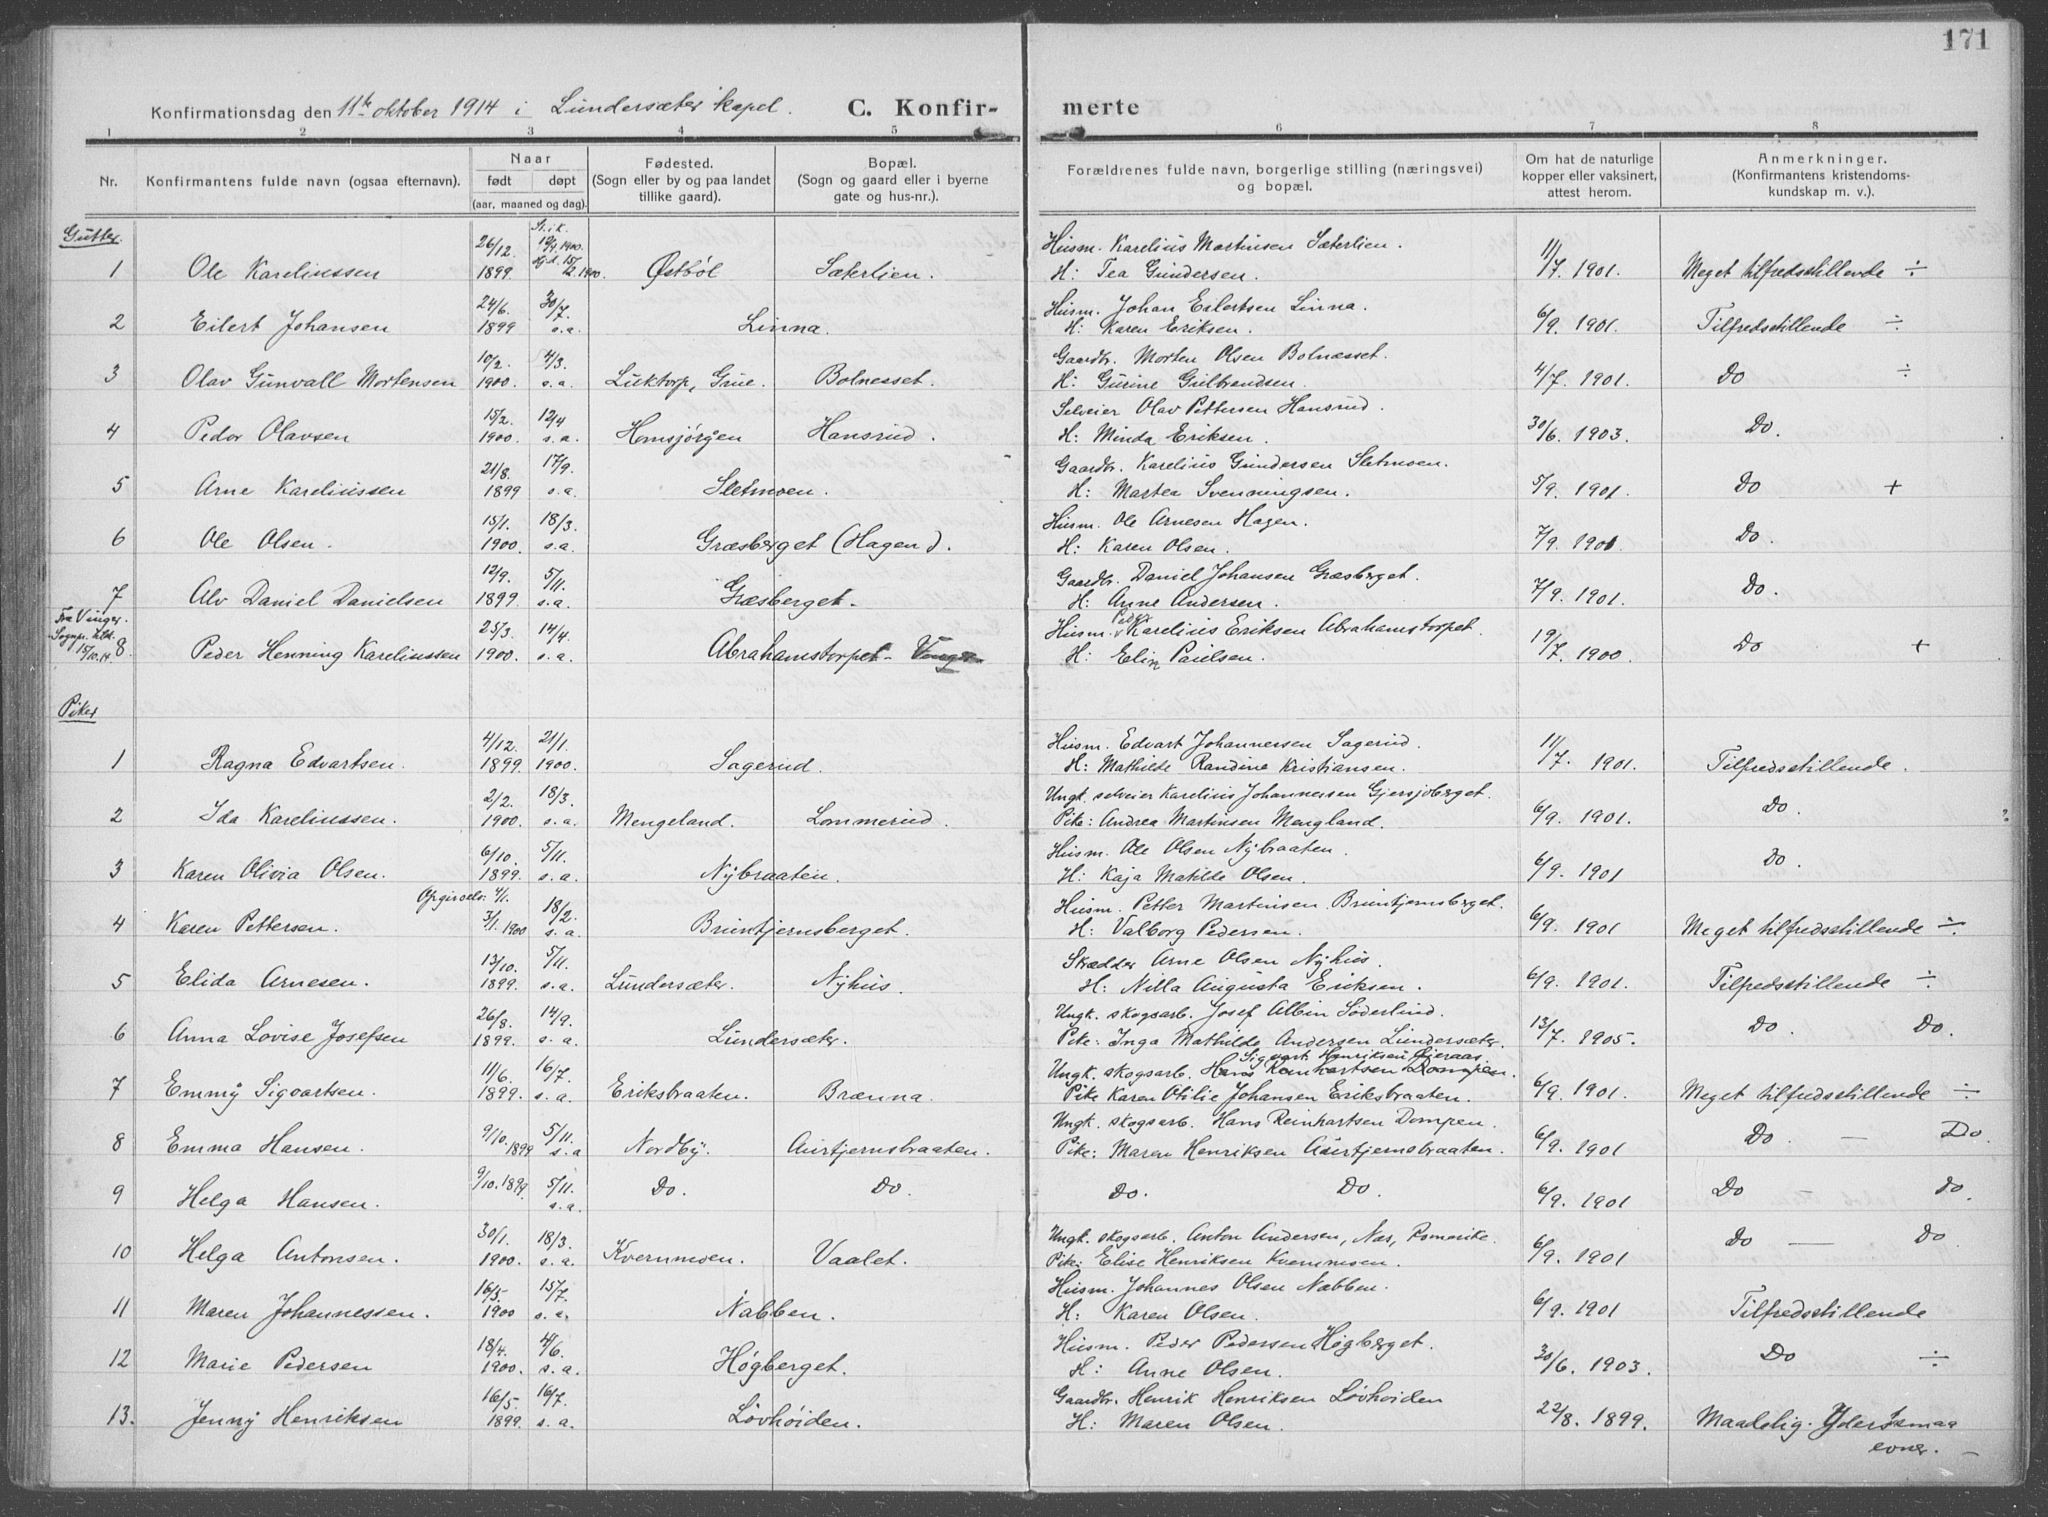 171
Konfirmationsdag den 11te oktober 1914 i Lundersæter kapel. C. Konfirmerte
1 2 3 4 5 6 7 8
Nr. Konfirmantens fulde navn (ogsaa efternavn). Naar født døpt (aar, maaned og dag). Fødested. (Sogn eller by og paa landet tillike gaard). Bopæl. (Sogn og gaard eller i byerne gate og hus-nr.). Forældrenes fulde navn, borgerlige stilling (næringsvei) og bopæl. Om hat de naturlige kopper eller vaksinert, attest herom. Anmerkninger. (Konfirmantens kristendomskundskap m. v.).
Gutter.
1 Ole Kareliussen 26/12. 1899 St. i k. 19/4 1900. 15/12 1900. Østbøl Sæterlien. Husm. Karelius Martinsen Sæterlien. H: Tea Gundersen. 11/7. 1901. Meget tilfredsstillende ÷
2 Eilert Johansen 24/6. 1899 30/7. s.a. Linna. Husm. Johan Eilertsen Linna. H: Karen Eriksen. 6/9. 1901. Tilfredsstillende ÷
3 Olav Gunvall Mortensen 10/2. 1900. 4/3. s.a. Luktorp, Grue. Bolnesset. Gaardbr. Morten Olsen Bolnesset. H: Gurine Gulbrandsen. 4/7. 1901. Do ÷
4 Peder Olavsen 15/2. 1900. 12/4 s.a. Homsjørgen Hansrud. Selveier Olav Pettersen Hansrud. H: Minda Eriksen. 30/6. 1903. Do.
5 Arne Kareliussen 21/8. 1899 17/9. s.a. Sletmoen. Gaardbr. Karelius Gundersen Sletmoen. H: Martea Svenningsen. 5/9. 1901. Do +
6 Ole Olsen. 15/1. 1900. 18/3. s.a. Græsberget (Hagen). Husm. Ole Arnesen Hagen. H: Karen Olsen. 7/9. 1901. Do.
7 Alv Daniel Danielsen 12/9. 1899 5/11. s.a. Græsberget. Gaardbr. Daniel Johansen Græsberget. H: Anne Andersen. 7/9. 1901. Do.
Fra Vinger. Sognepr. 15/10.14.
8 Peder Henning Kareliussen 25/3. 1900. 14/4. s.a. Abrahamstorpet - Vinger Husm. Peder Karelius Eriksen Abrahamstorpet. H: Elin Paulsen. 19/7. 1900. Do +
Piker
1 Ragna Edvartsen. 4/12. 1899. 21/1. 1900. Sagerud. Husm. Edvart Johannersen Sagerud. H: Mathilde Randine Kristiansen. 11/7. 1901. Tilfredsstillende.
2 Ida Kareliussen. 2/2. 1900. 18/3. s.a. Mengeland. Lommerud. Ungk. selveier Karelius Johannersen Gjersjøberget. Pike: Andrea Martinsen Mengland. 6/9. 1901. Do.
3 Karen Olivia Olsen. 6/10. 1899. 5/11. s.a. Nybraaten. Husm. Ole Olsen Nybraaten. H: Kaja Matilde Olsen. 6/9. 1901 Do.
4 Karen Pettersen. Opgivels. 4/1. 3/1. 1900 18/2. s.a. Bruntjernsberget. Husm. Petter Martinsen Bruntjernsberget. H: Valborg Pedersen. 6/9. 1901 Meget tilfredsstillende ÷.
5 Elida Arnesen. 13/10. 1899. 5/11. s.a. Lundersæter. Nyhus. Skrædder Arne Olsen Nyhus. H: Nilla Augusta Eriksen. 6/9. 1901. Tilfredsstillende ÷
6 Anna Lovise Josefsen 26/8. 1899. 14/9. s.a. Lundersæter. Ungk. skogsarb. Josef Albin Søderlind. Pike: Inga Mathilde Andersen Lundersæter. 13/7. 1905. Do. Do.
7 Emmy Sigvartsen. 11/6. 1899. 16/7. s.a. Eriksbraaten. Brænna. Ungk. skogsarb. Hans Reinhartsen Dompen. Sigvart Henriksen Pike Karen Otilie Johansen Eriksbraaten. 6/9. 1901. Meget tilfredsstillende ÷
8 Emma Hansen. 9/10. 1899 5/11. s.a Nordby. Aurtjernsbraaten. Ungk. skogsarb. Hans Reinhartsen Dompen. Pike: Maren Henriksen Aurtjernsbraaten. 6/9. 1901 Do — Do.
9 Helga Hansen. 9/10. 1899. 5/11. s.a. Do. Do. Do. Do. 6/9. 1901 Do — Do.
10 Helga Antonsen. 30/1. 1900. 18/3. s.a. Kvernmoen. Vaalet. Ungk. skogsarb. Anton Andersen, Næs, Romerike. Pike: Elise Henriksen Kvernmoen. 6/9. 1901 Do — Do
11 Maren Johannessen. 16/5. 1900 15/7. s.a. Nabben. Husm. Johannes Olsen Nabben. H: Karen Olsen. 6/9. 1901 Tilfredsstillende
12 Marie Pedersen 18/4. 1900. 4/6. s.a. Høgberget. Husm. Peder Pedersen Høgberget. H: Anne Olsen. 30/6. 1903. Do ÷
13. Jenny Henriksen 16/5. 1899. 16/7. s.a. Løvhøiden. Gaardbr. Henrik Henriksen Løvhøiden H: Maren Olsen. 22/8. 1899. Maadelig. Yderst smaa evner. —